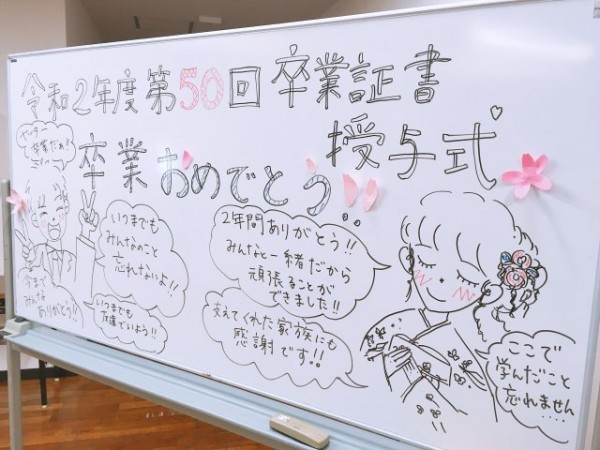 令和2年度第50回卒業証書
授与式
卒業おめでとう!!
いつまでも
みんなのこと
忘れないよ!!
今まで
みんな
ありがとう!!
いつまでも
友達でいよう!!
2年間ありがとう!!
みんなと一緒だから
頑張ることが
できました!!
支えてくれた家族にも
感謝です!!
ここで
学んだこと
忘れません....